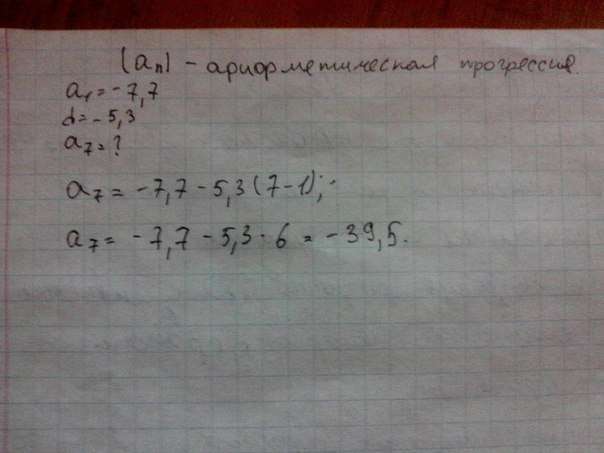 (aₙ) - арифметическая прогрессия.
a₁ = -7,7
d = -5,3
a₇ = ?
a₇ = -7,7 - 5,3(7-1);
a₇ = -7,7 - 5,3 · 6 = -39,5.